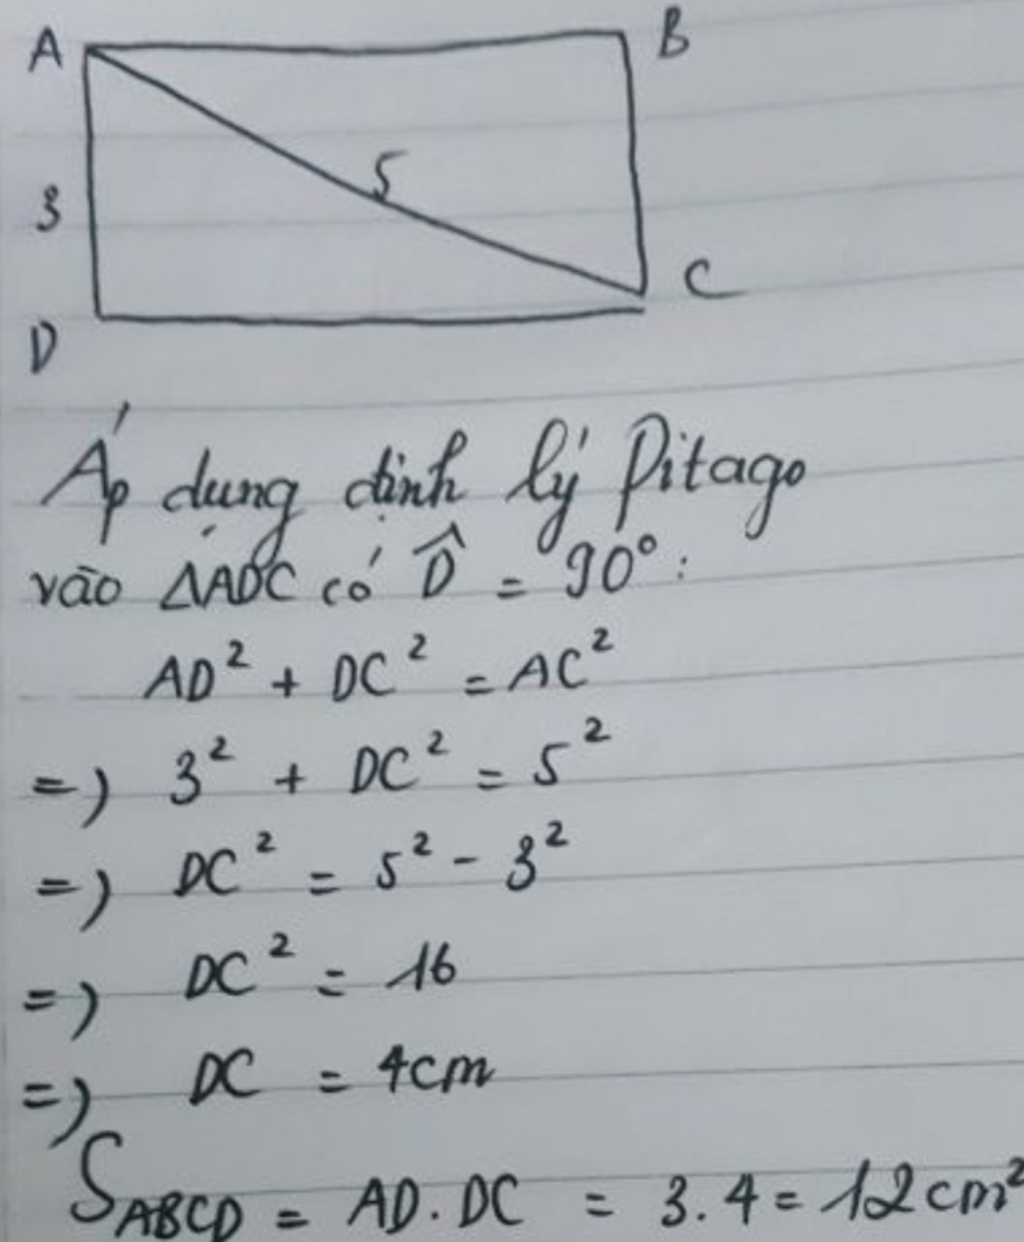 A
B
5
3
C
D
Áp dụng định lý Pitago
vào ΔADC có D̂ = 90° :
AD² + DC² = AC²
=) 3² + DC² = 5²
=) DC² = 5² - 3²
=) DC² = 16
=) DC = 4cm
S_ABCD = AD . DC = 3 . 4 = 12 cm²